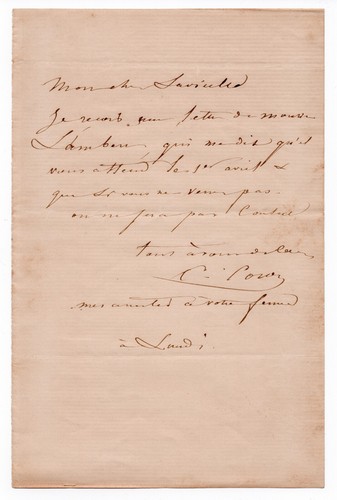 Mon cher
Je reçois une lettre de
Lambert qui me dit qu'il
vous attend le 1er avril &
que si vous ne venez pas
on ne sera pas content
tout à vous de cœur
C. Corot
mes amitiés à votre femme
à Lundi.